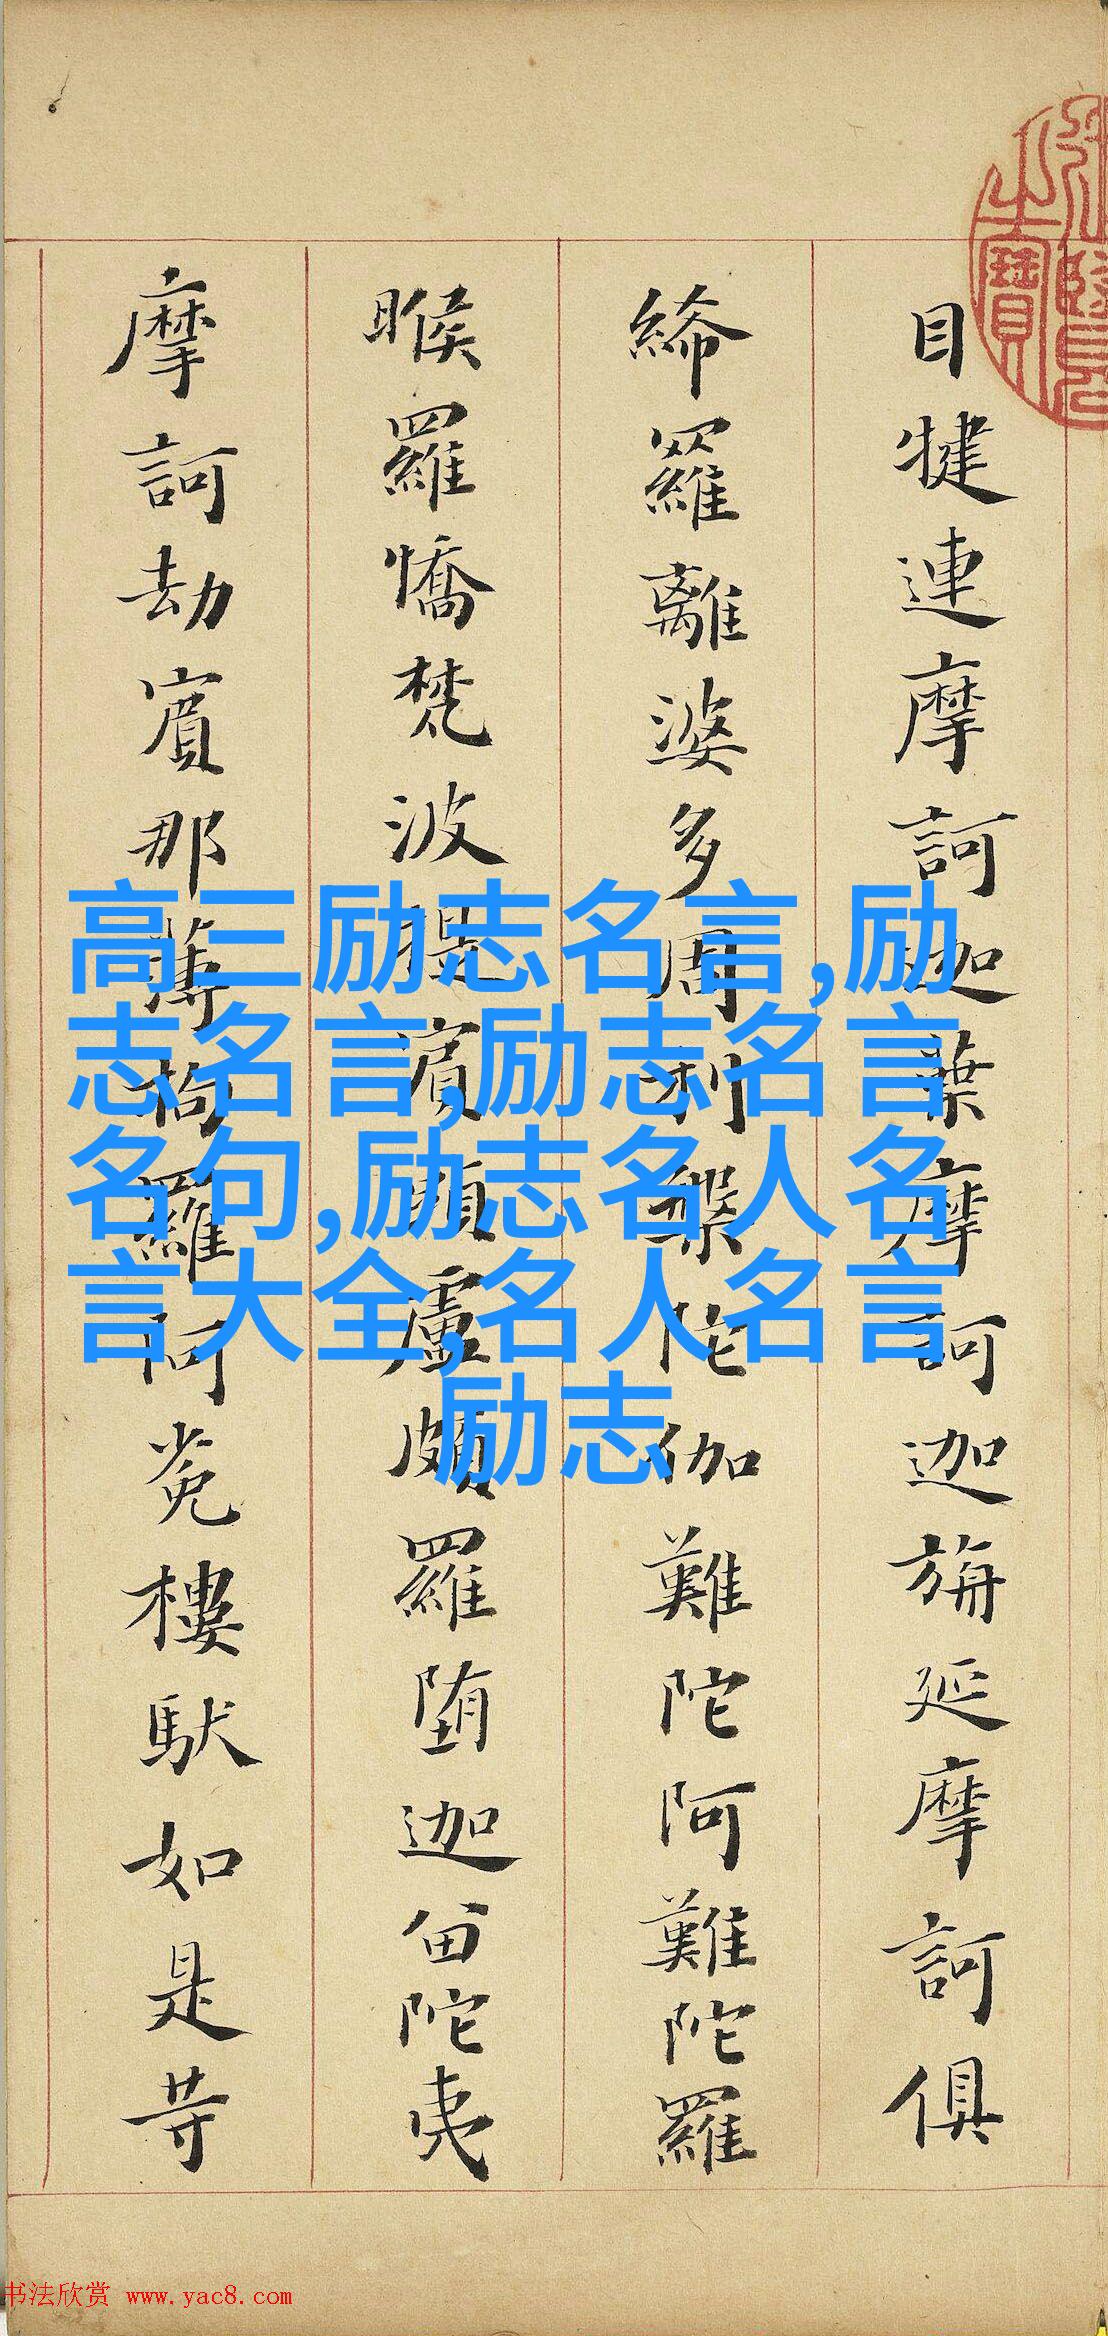 目犍連摩訶迦葉摩訶迦旃延摩訶俱
絺羅離婆多周利槃陀伽難陀阿難陀羅
睺羅憍梵波提賓頭盧頗羅堕迦留陀夷
摩訶劫賓那薄拘羅阿㝹樓馱如是等
高三励志名言,励
志名言,励志名言
名句,励志名人名
言大全,名人名言
励志
书法欣赏 www.yac8.com